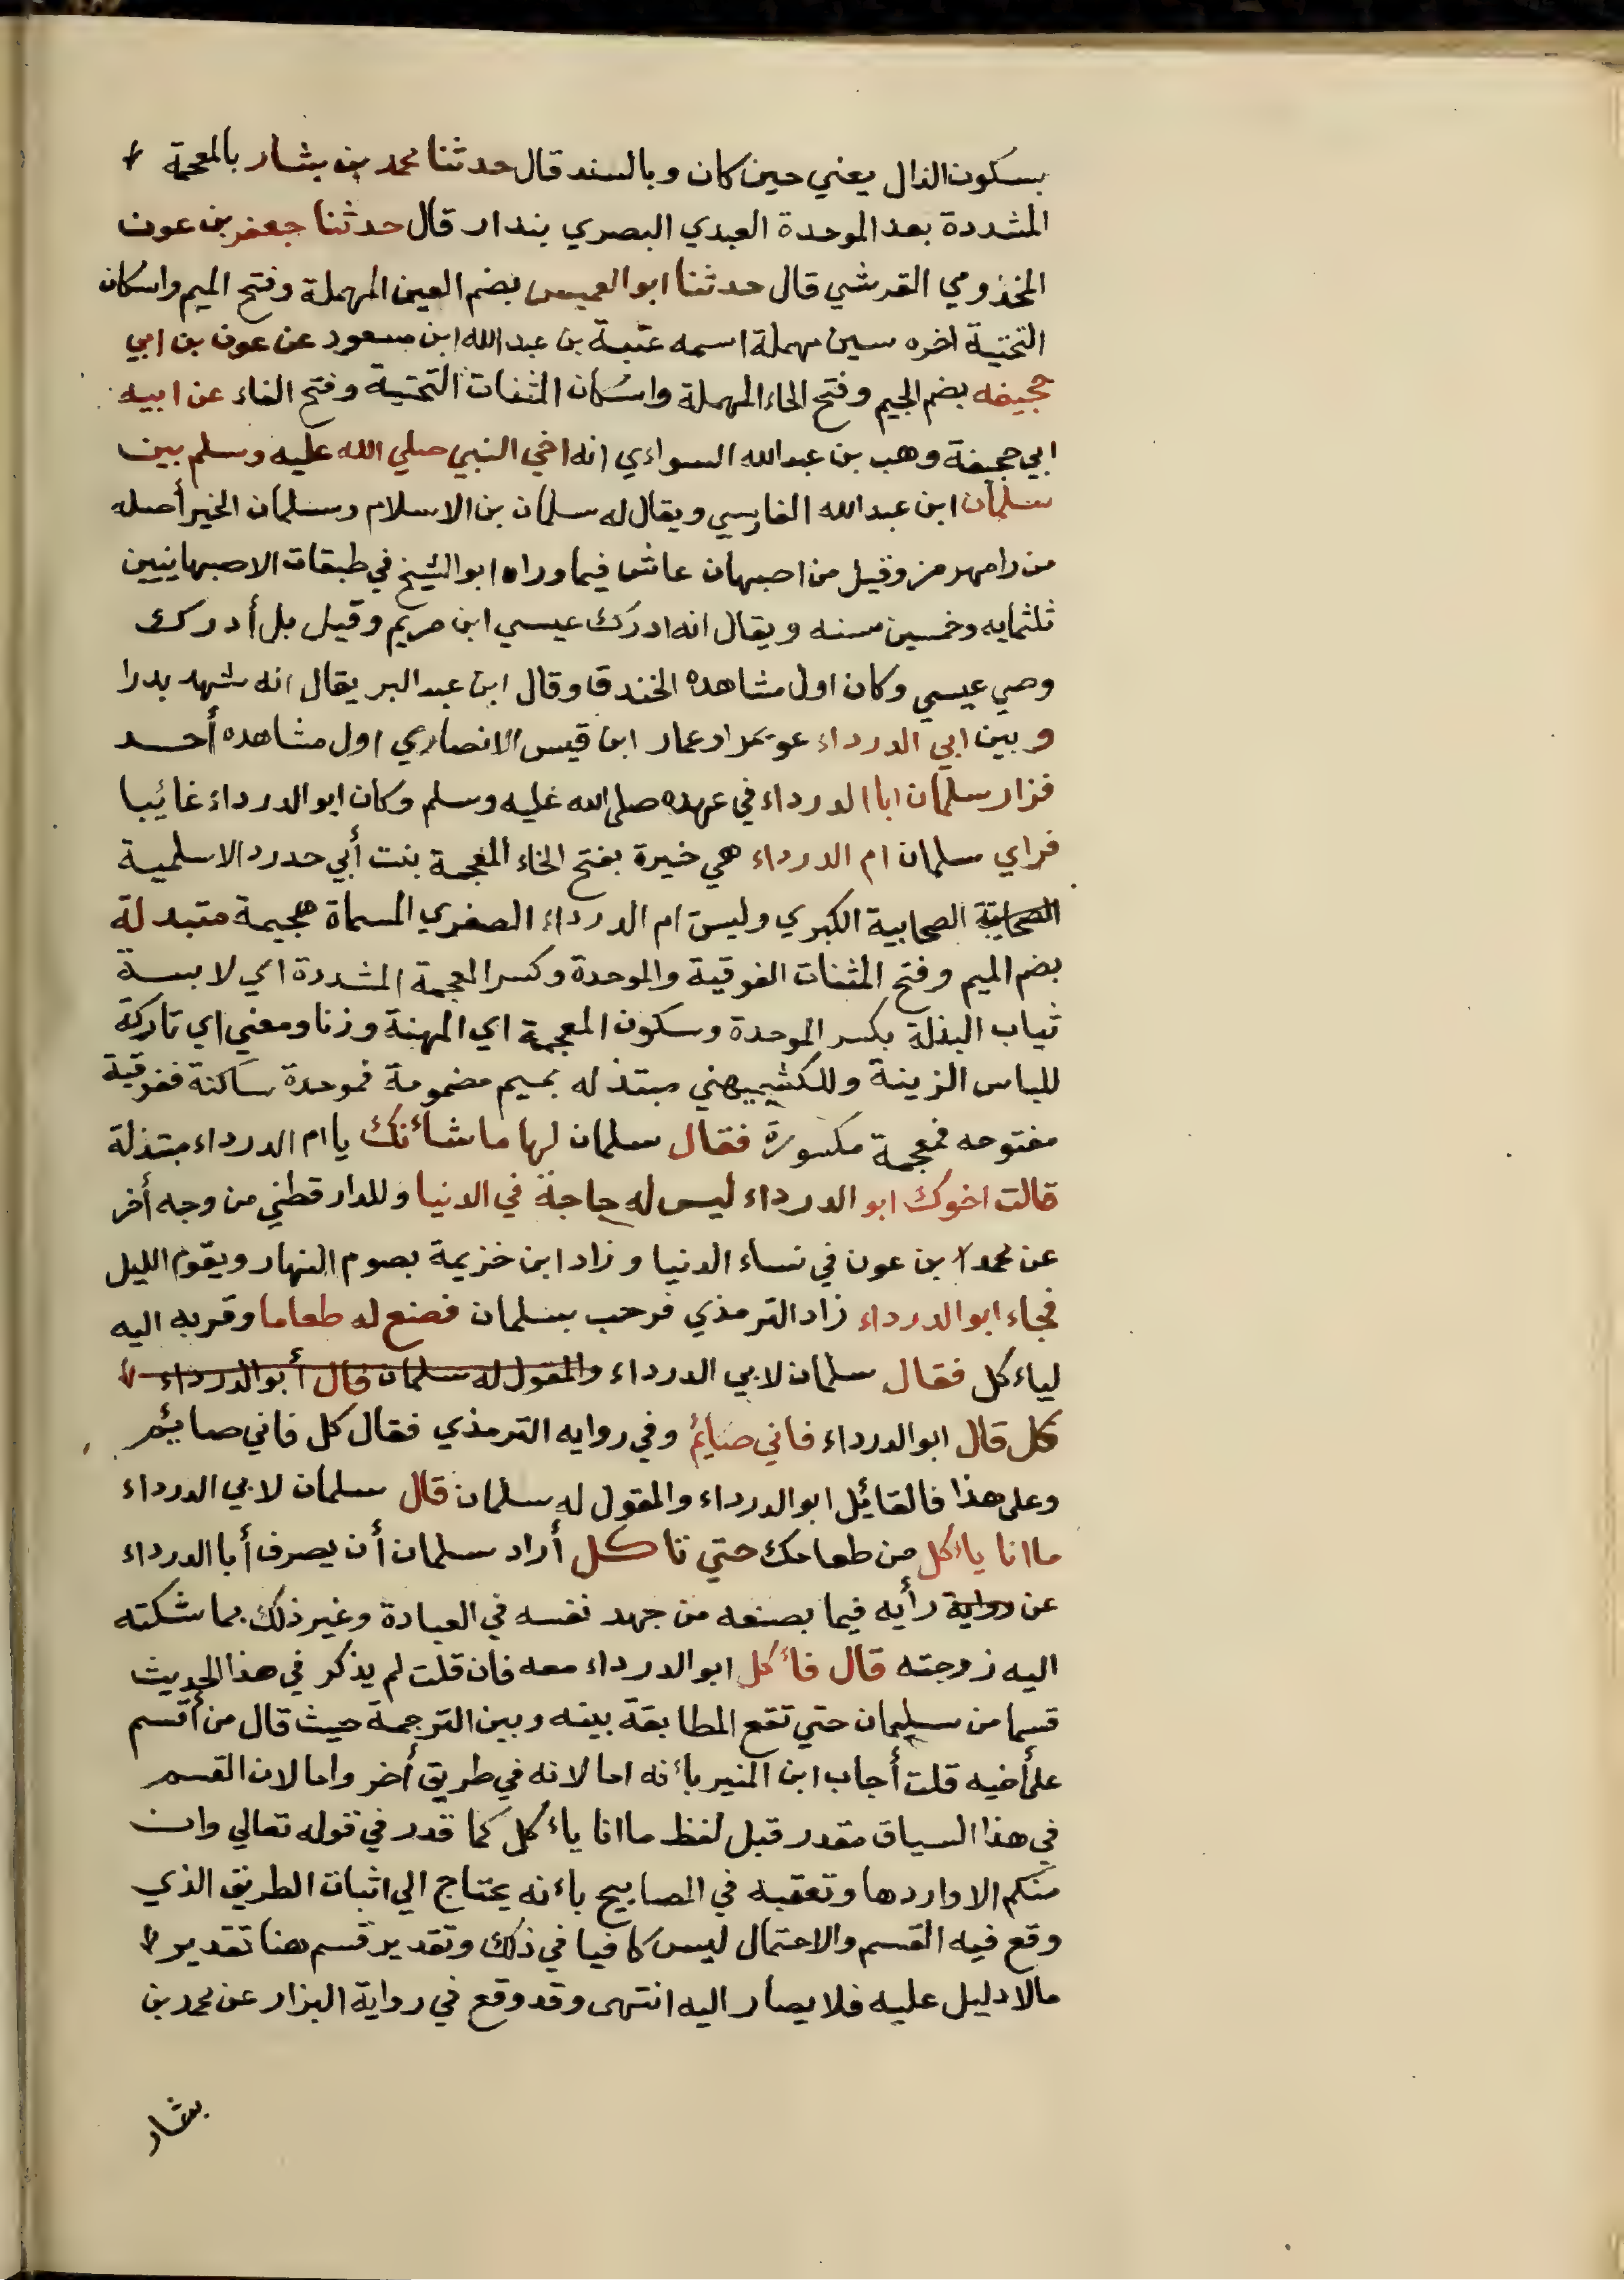 بسكون الذال يعني حين كان وبالسند قال حدثنا محمد بن بشار بالمعجمة
المشددة بعد الموحدة العبدي البصري بندار قال حدثنا جعفر بن عون
المخذومي القرشي قال حدثنا ابو العميس بضم العين المهملة وفتح الميم واسكان
التحتية اخره سين مهملة اسمه عتبة بن عبد الله ابن مسعود عن عون بن ابي
جحيفه بضم الجيم وفتح الحاء المهملة واسكان المثنات التحتية وفتح الفاء عن ابيه
ابي جحيفة وهب بن عبد الله السواءي انه اخي النبي صلي الله عليه وسلم بين
سلمان ابن عبد الله الفارسي ويقال له سلمان بن الاسلام وسلمان الخير أصله
من رامهرمز وقيل من اصبهان عاش فيما وراه ابو الشيخ في طبقات الاصبهانيين
ثلثمايه وخمسين سنه ويقال انه ادرك عيسي ابن مريم وقيل بل أدرك
وصي عيسي وكان اول مشاهده الخندق وقال ابن عبد البر يقال انه شهد بدرا
وبين ابي الدرداء عويمر او عمار ابن قيس الانصاري اول مشاهده أحد
فزار سلمان ابا الدرداء في عهده صلى الله عليه وسلم وكان ابو الدرداء غائبا
فراي سلمان ام الدرداء هي خيرة بفتح الخاء المعجمة بنت أبي حدرد الاسلمية
الصحابية الصحابية الكبري وليس ام الدرداء الصغري المسماة هجيمة متبدلة
بضم الميم وفتح المثنات الفوقية والموحدة وكسر المعجمة المشددة اي لابسة
ثياب البذلة بكسر الموحدة وسكون المعجمة اي المهنة وزنا ومعني اي تاركة
للباس الزينة وللكشيميهني مبتذله بميم مضمومة فموحدة ساكنة ففوقية
مفتوحه فمعجمة مكسورة فقال سلمان لها ما شاءنك يا ام الدرداء مبتذلة
قالت اخوك ابو الدرداء ليس له حاجة في الدنيا وللدار قطني من وجه أخر
عن محمد بن عون في نساء الدنيا وزاد ابن خزيمة بصوم النهار ويقوم الليل
فجاء ابو الدرداء زاد الترمذي فرحب بسلمان فصنع له طعاما وقربه اليه
لياءكل فقال سلمان لابي الدرداء والمقول له سلمان قال أبو الدرداء
كل قال ابو الدرداء فاني صايم وفي روايه الترمذي فقال كل فاني صايم
وعلى هذا فالقائل ابو الدرداء والمقول له سلمان قال سلمان لابي الدرداء
ما انا ياءكل من طعامك حتي تاكل أراد سلمان أن يصرف أبا الدرداء
عن رواية رأيه فيما بصنعه من جهد نفسه في العبادة وغير ذلك بما شكته
اليه زوجته قال فاءكل ابو الدرداء معه فان قلت لم يذكر في هذا الحديث
قسما من سليمان حتي تقع المطابقة بينه وبين الترجمة حيث قال من أقسم
على أخيه قلت أجاب ابن المنير باءنه اما لانه في طريق أخر واما لان القسم
في هذا السياق مقدر قبل لفظ ما انا ياءكل كما قدر في قوله تعالي وان
منكم الا واردها وتعقبه في المصابيح باءنه يحتاج الي اثبات الطريق الذي
وقع فيه القسم والاحتمال ليس كافيا في ذلك وتقدير قسم هنا تقدير
مالا دليل عليه فلا يصار اليه انتهى وقد وقع في رواية البزار عن محمد بن
بشار